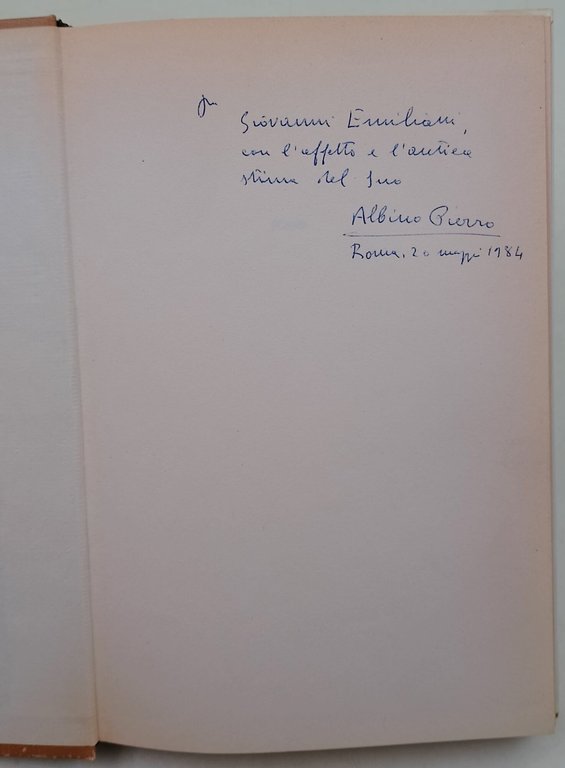 Giovanni Emiliani,
con l'affetto e l'antica
stima del Suo
Albino Pierro
Roma, 20 1984